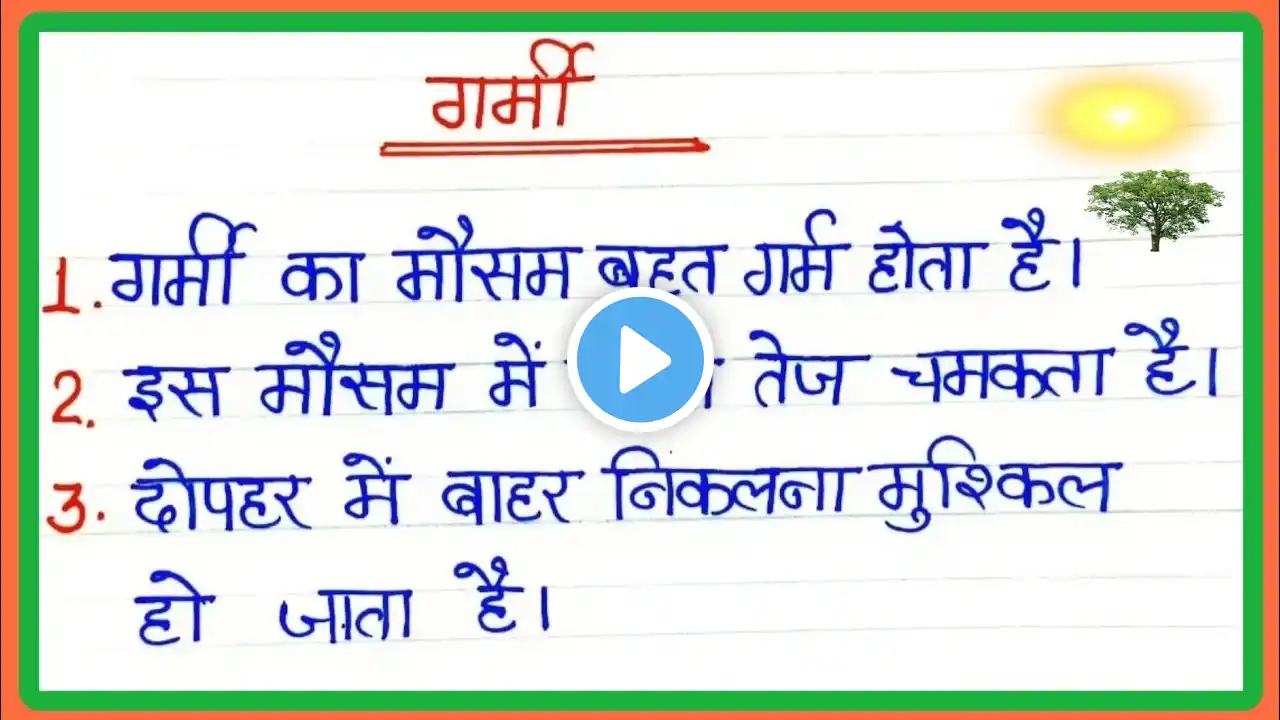 गर्मी
1. गर्मी का मौसम बहुत गर्म होता है।
2. इस मौसम में तेज चमकता है।
3. दोपहर में बाहर निकलना मुश्किल
हो जाता है।